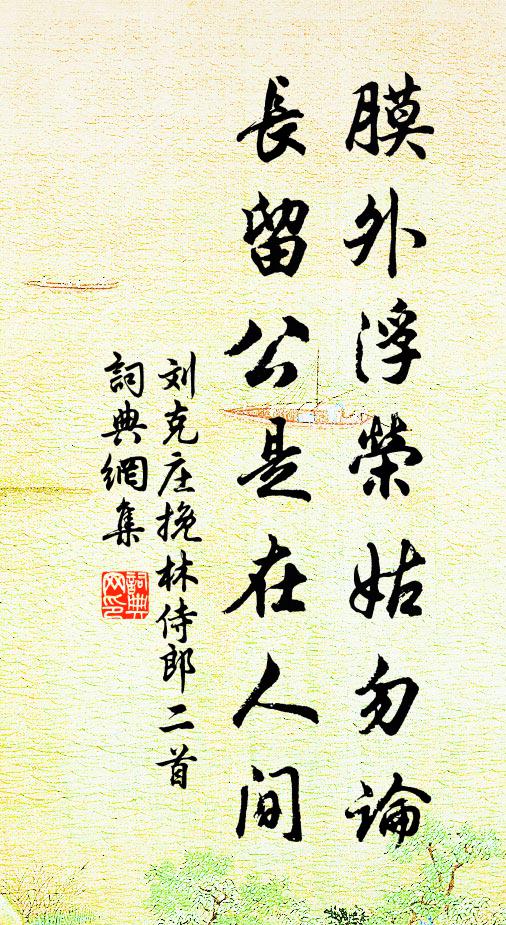 膜外浮榮姑勿論
長留公是在人間
刘克庄挽林侍郎二首
詞典網集
詞典网印